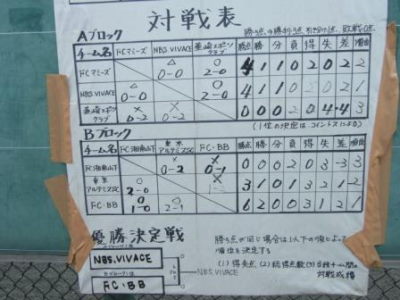 対戦表
Aブロック
チーム名 FCマミーズ NBS VIVACE 韮崎スポーツクラブ 勝点 勝 分 負 得 失 差 順位
FCマミーズ △ 0-0 ○ 2-0 4 1 1 0 2 0 2 2
NBS VIVACE △ 0-0 ○ 2-0 4 1 1 0 2 0 2 1
韮崎スポーツクラブ × 0-2 × 0-2 0 0 0 2 0 4 -4 3
(1位の決定は、コイントスによる)
Bブロック
チーム名 FC湘南山下 東京アルテミスSC FC・BB 勝点 勝 分 負 得 失 差 順位
FC湘南山下 × 0-2 × 0-1 0 0 0 2 0 3 -3 3
東京アルテミスSC 2-0 3 1 0 1 3 2 1 2
FC・BB 1-0 2-1 6 2 0 0 3 1 2 1
優勝決定戦
NBS.VIVACE
NBS.VIVACE
FC・BB
勝ち点が同じ場合は以下の順によって
順位を決定する
(1)得失点 (2)総得点数
対戦成績